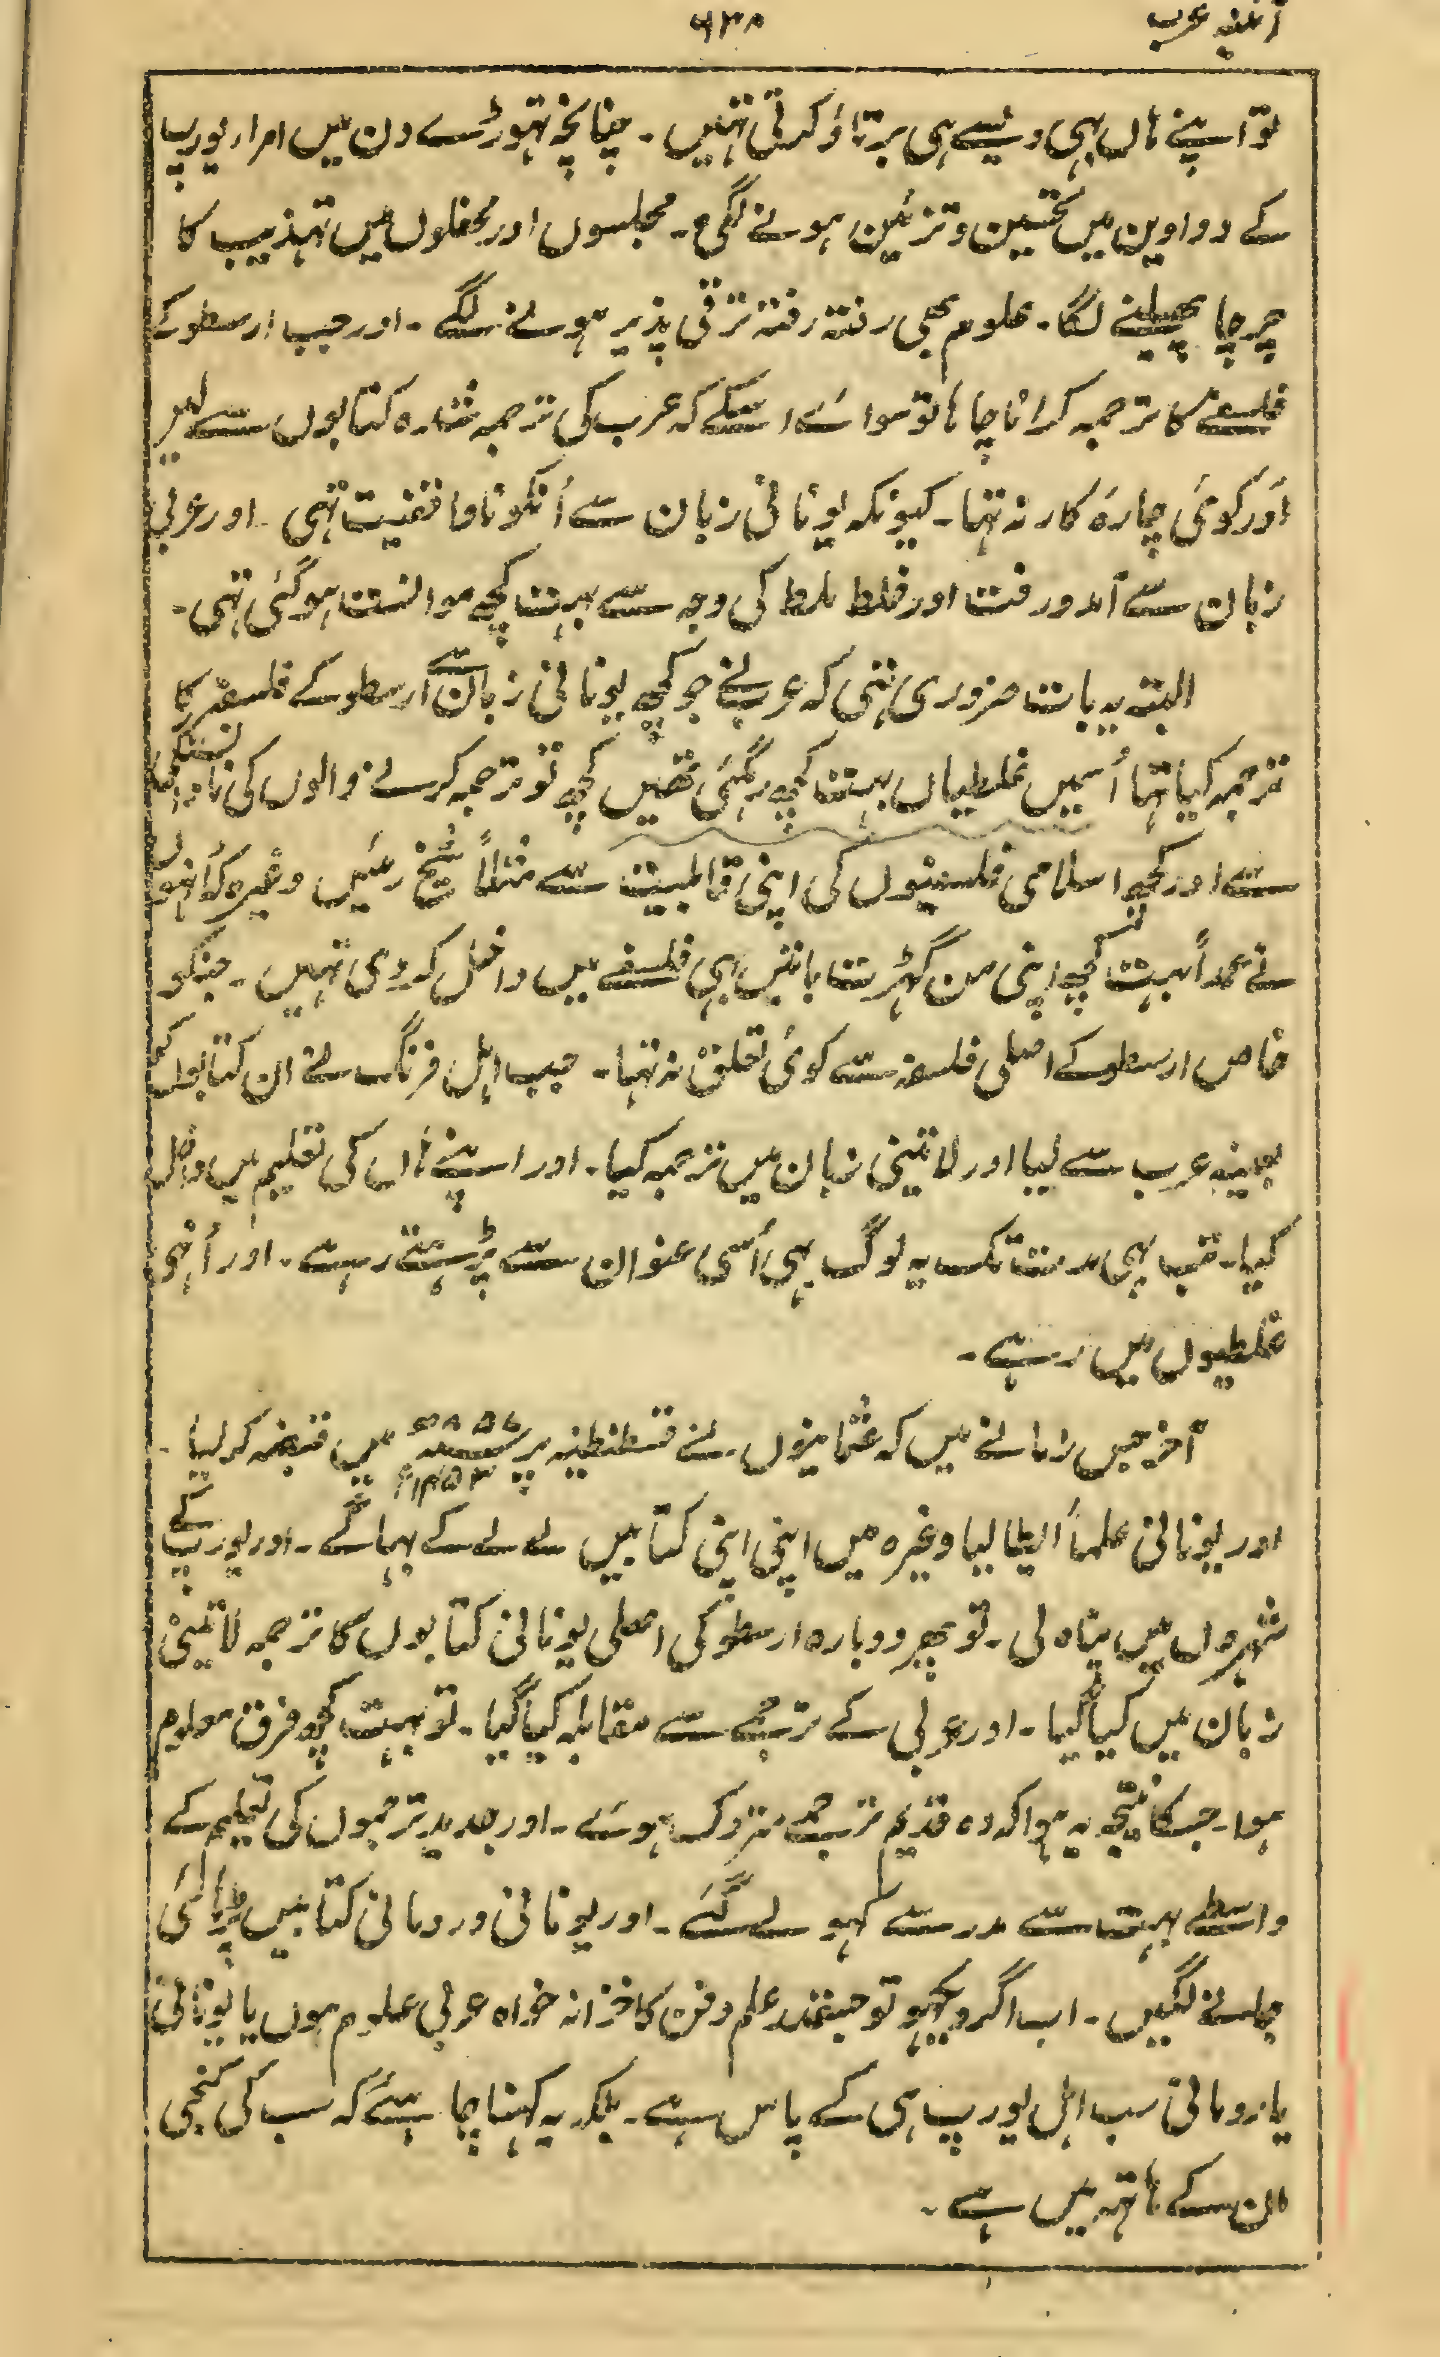 آئینہ عرب
۶۳۸
تو اپنے ہاں بہی ویسے ہی برتاؤ کرتی تہیں ۔ چنانچہ تہوڑے دن میں امراء یورپ
کے دواوین میں تحسین و تزئین ہونے لگی ۔ مجلسوں اور محفلوں میں تہذیب کا
چرچا پھیلنے لگا ۔ علوم بھی رفتہ رفتہ ترقی پذیر ہونے لگے ۔ اور جب ارسطو کے
فلسفے کا ترجمہ کرانا چاہا تو سوائے اسکے کہ عرب کی ترجمہ شدہ کتابوں سے لیں
اَور کوئی چارۂ کار نہ تہا ۔ کیونکہ یونانی زبان سے اُنکو ناواقفیت تہی ۔ اور عربی
زبان سے آمدورفت اور خلط ملط کی وجہ سے بہت کچھ موانست ہو گئی تہی ۔
البتہ یہ بات ضروری تہی کہ عرب نے جو کچھ یونانی زبان سے ارسطو کے فلسفہ کا
ترجمہ کیا تہا اُسمیں غلطیاں بہت کچھ رہ گئی تھیں کچھ تو ترجمہ کرنے والوں کی
سے اور کچھ اسلامی فلسفیوں کی اپنی قابلیت سے مثلاً شیخ رئیس وغیرہ کہ اُنہوں
نے عمداً بہت کچھ اپنی من گہڑت باتیں بہی فلسفے میں داخل کر دی تہیں ۔ جنکو
خاص ارسطو کے اصلی فلسفہ سے کوئی تعلق نہ تہا ۔ جب اہل فرنگ نے ان کتابوں کو
بعینہ عرب سے لیا اور لاتینی زبان میں ترجمہ کیا ۔ اور اپنے ہاں کی تعلیم میں داخل
کیا ۔ تب بہی مدت تک یہ لوگ بہی اُسی عنوان سے پڑہتے رہے ۔ اور اُنہی
غلطیوں میں رہے ۔
آخر جس زمانے میں کہ عثمانیوں نے قسطنطنیہ پر ۸۵۷ھ ۱۴۵۳ء میں قبضہ کر لیا ۔
اور یونانی علماً ایٹالیا وغیرہ میں اپنی اپنی کتابیں لے لے کے بہاگے ۔ اور یورپ کے
شہروں میں پناہ لی ۔ تو پھر دوبارہ ارسطو کی اصلی یونانی کتابوں کا ترجمہ لاتینی
زبان میں کیا گیا ۔ اور عربی کے ترجمے سے مقابلہ کیا گیا ۔ تو بہت کچھ فرق معلوم
ہوا ۔ جسکا نتیجہ یہ ہوا کہ وہ قدیم ترجمے متروک ہوئے ۔ اور جدید ترجموں کی تعلیم کے
واسطے بہت سے مدرسے کہولے گئے ۔ اور یونانی و رومانی کتابیں پڑہائی
جانے لگیں ۔ اب اگر دیکہو تو جسقدر علم و فن کا خزانہ خواہ عربی علوم ہوں یا یونانی
یا رومانی سب اہل یورپ ہی کے پاس ہے ۔ بلکہ یہ کہنا چاہئے کہ سب کی کنجی
ان کے ہاتہہ میں ہے ۔